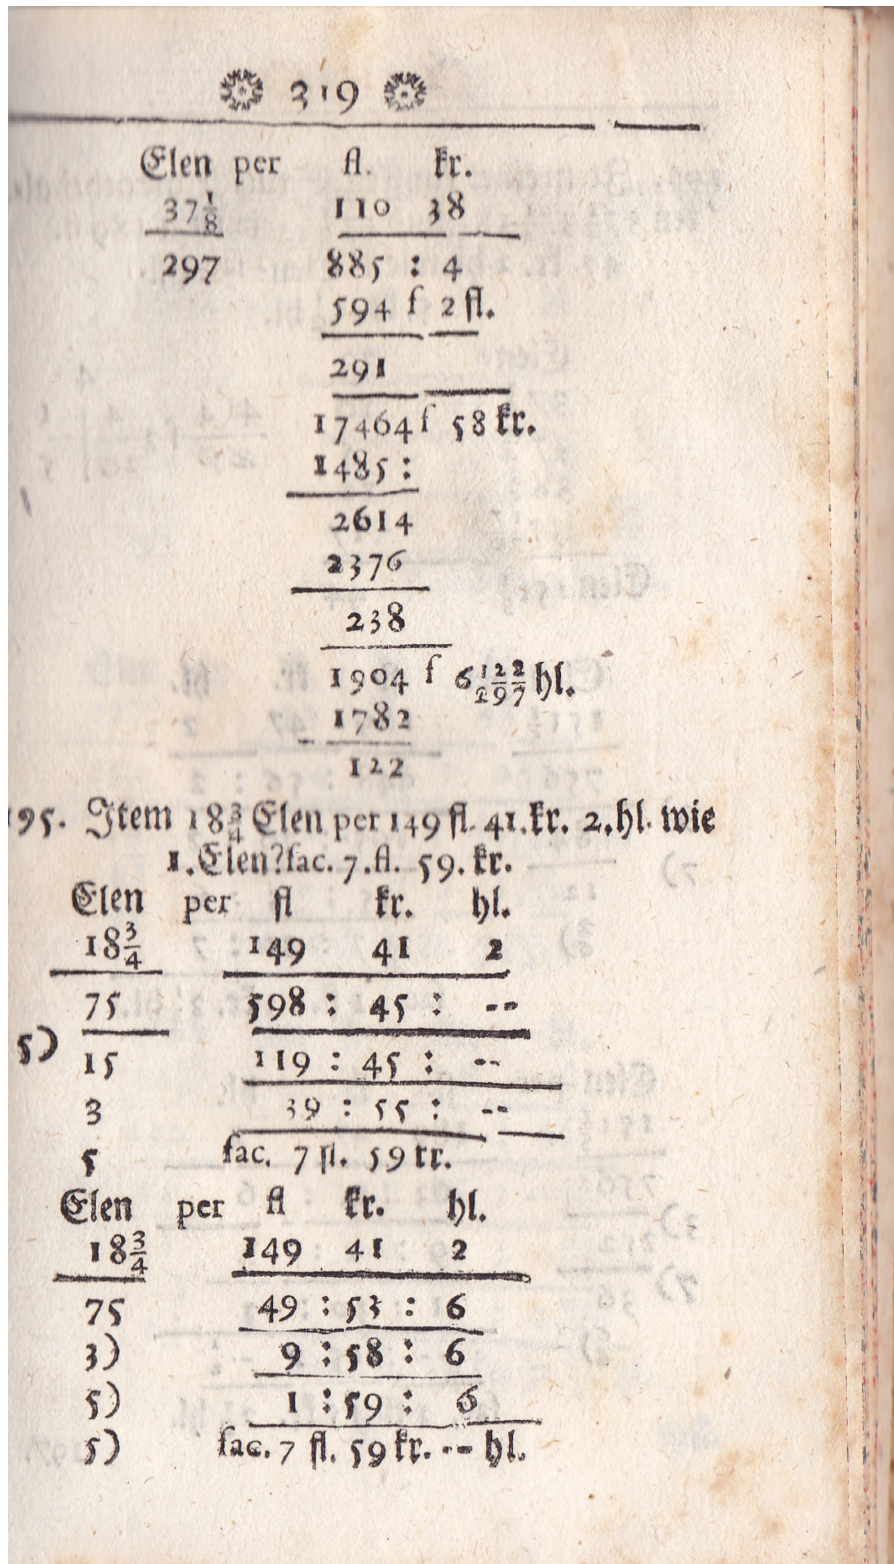 319
Elen per fl. kr.
37 1/8 110 38
297 885 : 4
594 ſ 2 fl.
291
17464 ſ 58 kr.
1485 :
2614
2376
238
1904 ſ 6 122/297 hl.
1782
122
195. Item 18 3/4 Elen per 149 fl. 41. kr. 2. hl. wie
1. Elen? fac. 7. fl. 59. kr.
Elen per fl kr. hl.
18 3/4 149 41 2
75 598 : 45 : --
5)
15 119 : 45 : --
3 39 : 55 : --
5 fac. 7 fl. 59 kr.
Elen per fl kr. hl.
18 3/4 149 41 2
75 49 : 53 : 6
3) 9 : 58 : 6
5) 1 : 59 : 6
5) fac. 7 fl. 59 kr. -- hl.